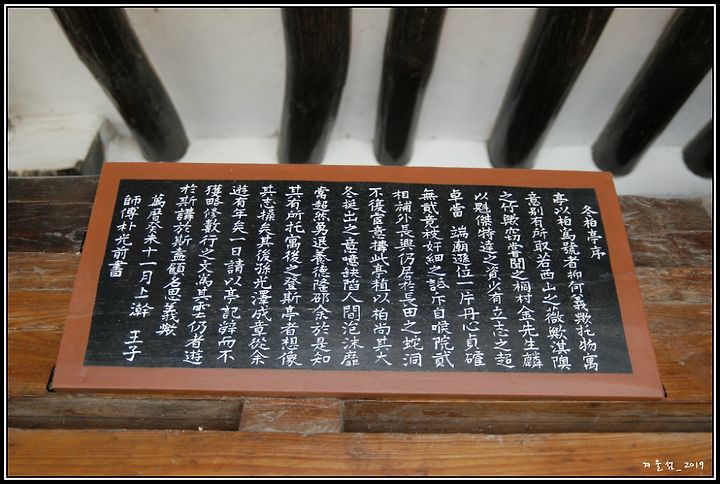 冬柏亭序
亭以柏爲號者抑何義歟托物寓
意別有所取若西山之薇歟淇隩
之竹歟窃嘗聞之桐村金先生麟
以魁傑特達之資少有立志之超
卓當 端廟遜位一片丹心貞確
無貳 奸細之 斥自喉院貳
相補外長興仍居於長田之蛇洞
不復宦意構此亭植以柏尚其大
冬挺出之意噫缺陷人間泡沫靡
常超然勇退養德隆邵余於是知
其有所托寓後之登斯亭者想像
其志操矣其後孫光澤成章從余
遊有年矣一日請以亭記辭而不
獲略修數行之文爲其雲仍者遊
於斯講於斯盍顧名思義歟
萬曆癸未十一月上澣 王子
師傅朴光前書
겨울섬_2019